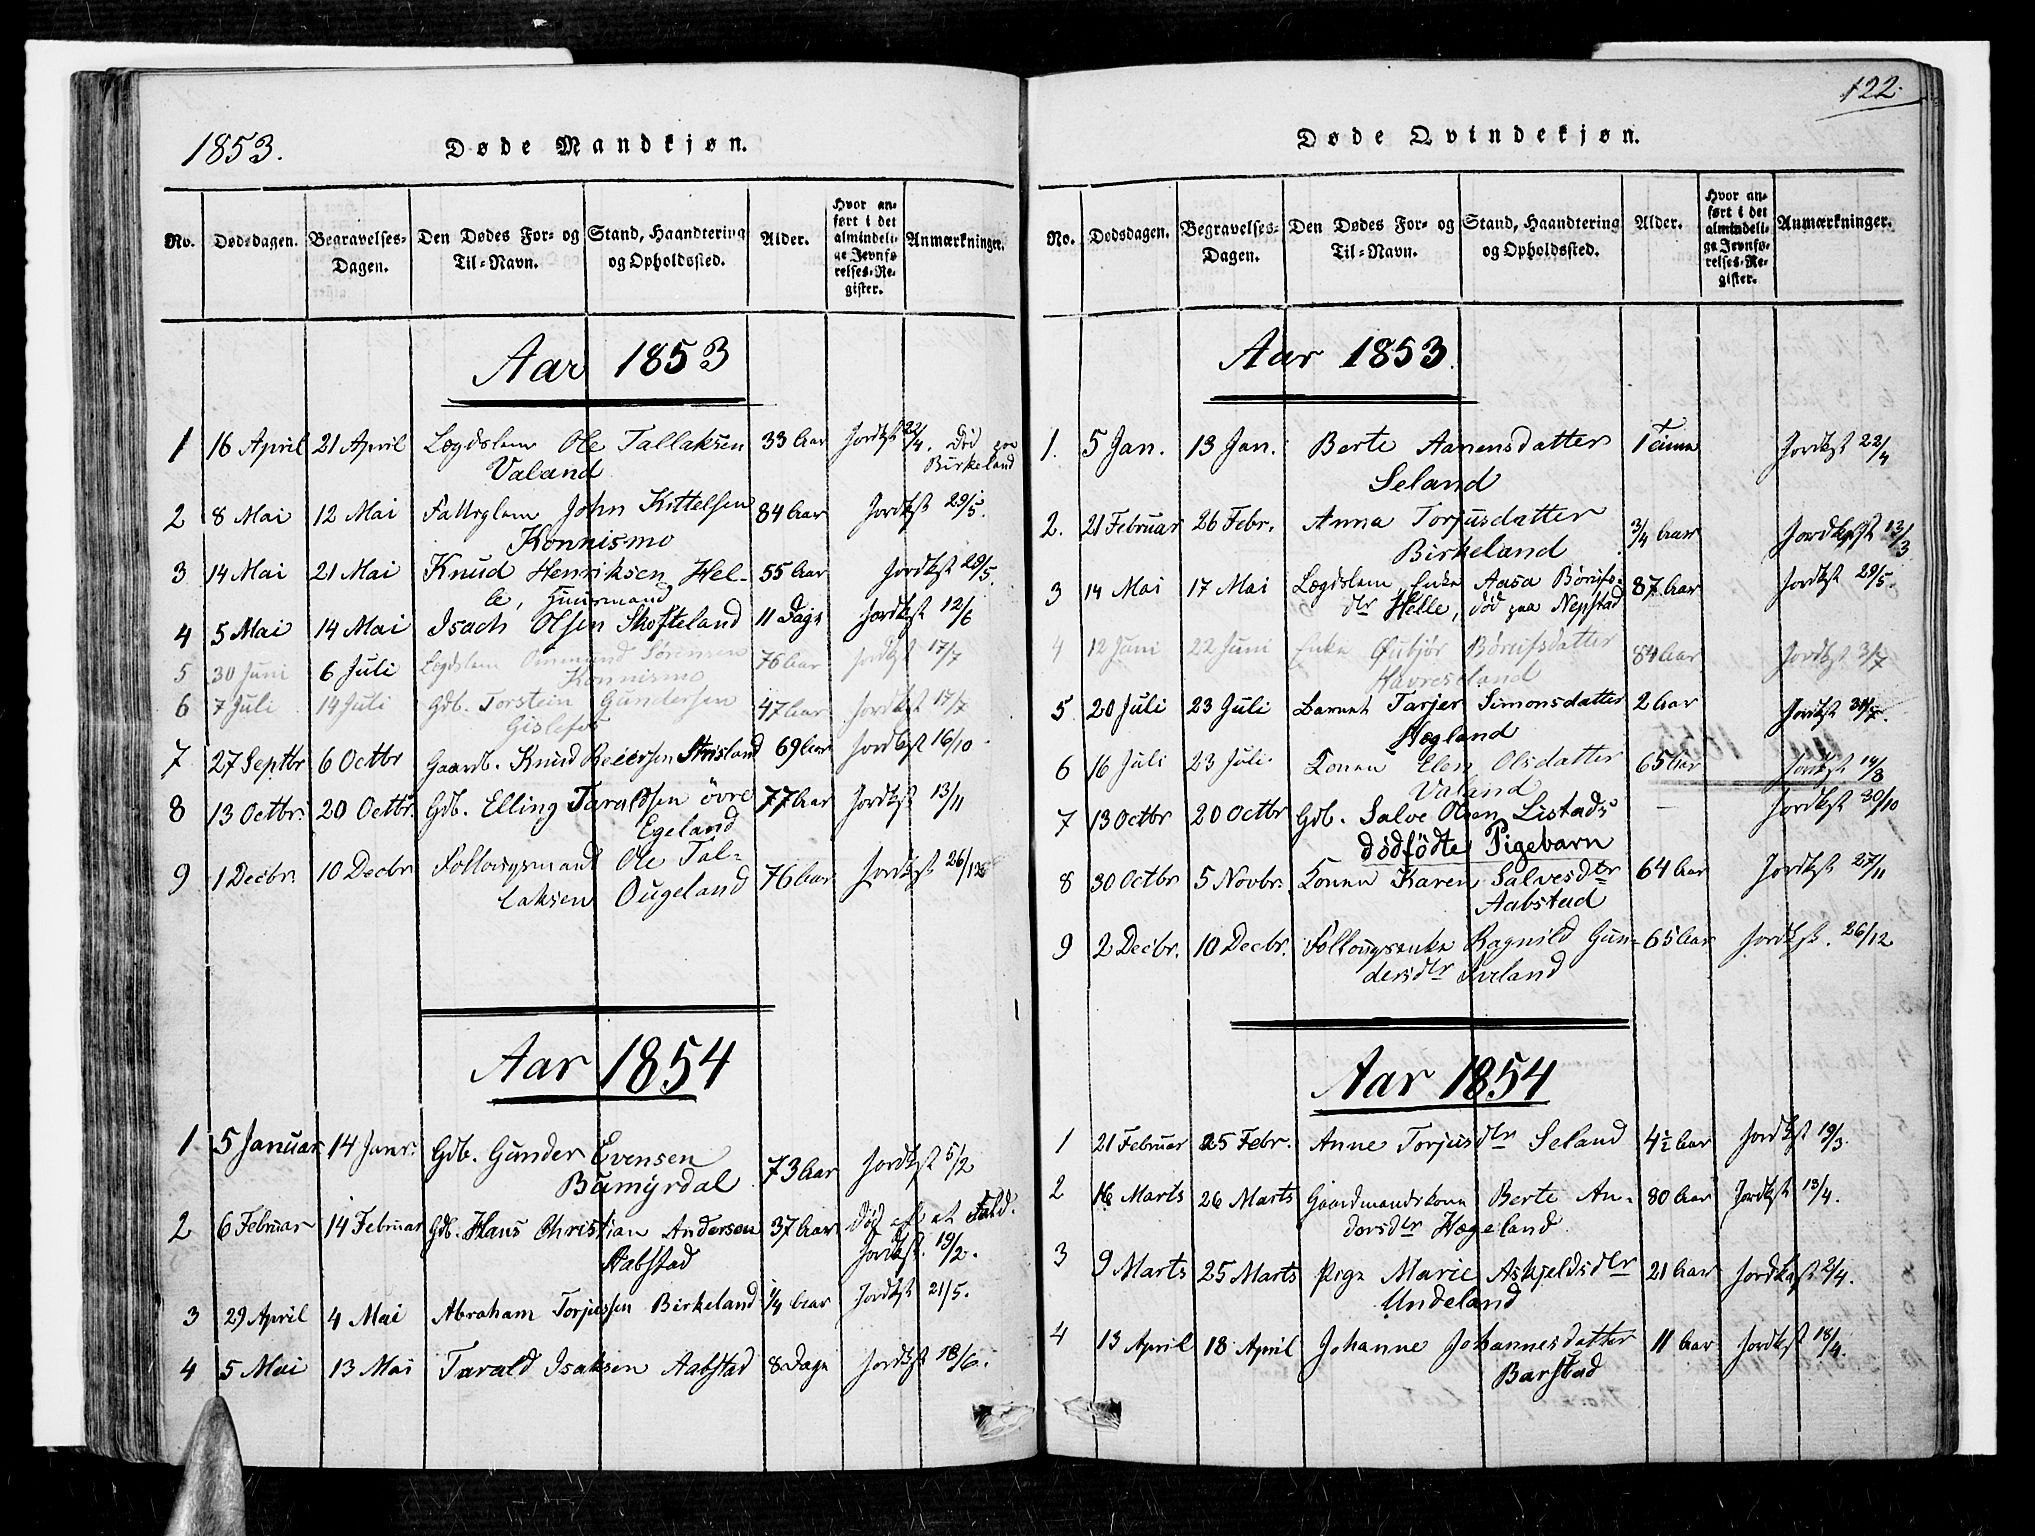 1853.
Døde Mandkjøn.
No. Dødsdagen. Begravelses-Dagen. Den Dødes For- og Til-Navn. Stand, Haandtering og Opholdssted. Alder. Hvor anført i det almindelige Jevnførelses-Register. Anmærkninger.
Aar 1853
1 16 April 21 April Lægdslem Ole Tallaksen 33 Aar Jordkst 22/4. Død paa
Valand Birkeland
2 8 Mai 12 Mai Fattiglem John Kittelsen 84 Aar Jordkst 29/5.
Konnismo
3 14 Mai 21 Mai Knud Henriksen Hel- 55 Aar Jordkst 29/5
le, Huusmand
4 5 Mai 14 Mai Isach Olsen Skofteland 11 Dage Jordkst 12/6
5 30 Juni 6 Juli Lægdslem Ommund Sörensen 76 Aar Jordkst 17/7
Konnismo
6 7 Juli 14 Juli Gdb. Torstein Gundersen 47 Aar Jordkst 17/7
7 27 Septbr 6 Octbr Gaardb. Knud Reiersen 69 Aar Jordkst 16/10
8 13 Octbr. 20 Octbr. Gdb. Elling Taraldsen övre 77 Aar Jordkst 13/11
Egeland
9 1 Decbr. 10 Decbr Follougsmand Ole Tal- 76 Aar Jordkst 26/12
laksen Ougeland
Aar 1854
1 5 Januar 14 Janr. Gdb. Gunder Evensen 73 Aar Jordkst 5/2
Bumyrdal
2 6 Februar 14 Februar Gdb. Hans Christian Andersen 37 Aar Död af et Fald.
Aabstad Jordkst. 19/2.
3 29 April 4 Mai Abraham Torjussen Birkeland 1/4 Aar Jordkst 21/5.
4 5 Mai 13 Mai Tarald Isaksen Aabstad 8 Dage Jordkst 18/6.
122.
Døde Qvindekjøn.
No. Dødsdagen. Begravelses-Dagen. Den Dødes For- og Til-Navn. Stand, Haandtering og Opholdssted. Alder. Hvor anført i det almindelige Jevnførelses-Register. Anmærkninger.
Aar 1853.
1. 5 Jan. 13 Jan. Berte Aanensdatter 1 Time Jordkst 22/4
Seland
2. 21 Februar 26 Febr. Anna Torjusdatter 3/4 Aar Jordkst 13/3
Birkeland
3 14 Mai 17 Mai Lægdslem Enke Aasa Börufs- 87 Aar Jordkst 29/5.
dtr Helle, död paa Nepstad
4 12 Juni 22 Juni Enke Börufsdatter 84 Aar Jordkst 3/7
Havreseland
5 20 Juli 23 Juli Barnet Tarjer Simonsdatter 2 Aar Jordkst
Hægland
6 16 Juli 23 Juli. Konen Elen Olsdatter 65 Aar Jordkst 14/8
Valand
7 13 Octbr 20 Octbr Gdb. Salve Olsen Listads — Jordkst 30/10
dödfödte Pigebarn
8 30 Octbr 5 Novbr. Konen Karen Salvesdtr 64 Aar Jordkst 27/11
Aabstad
9 2 Decbr. 10 Decbr. Follougsenke Ragnild Gun- 65 Aar Jordkst. 26/12
dersdtr Iveland
Aar 1854
1 21 Februar 25 Febr. Anne Torjusdtr Seland 4½ Aar Jordkst 19/3.
2 16 Marts 26 Marts Gaardmandskone Berte An- 80 Aar Jordkst 13/4.
dersdtr Hægeland
3 9 Marts 25 Marts Pige Marie Askjeldsdtr 21 Aar Jordkast 2/4.
Undeland
4 13 April 18 April Johanne Johannesdatter 11 Aar Jordkst 18/4.
Barstad